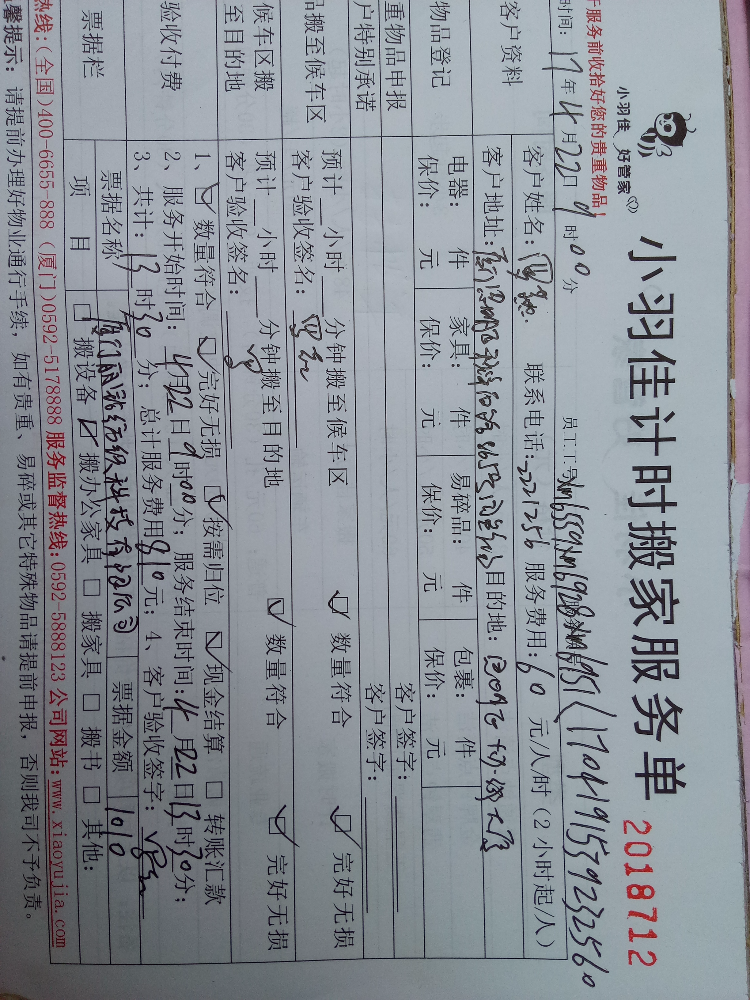 小羽佳 好管家
小羽佳计时搬家服务单
2018712
于服务前收拾好您的贵重物品!
时间: 17年4月22日9时00分 员工工号
客户资料
客户姓名: 联系电话:2221256 服务费用:60元/人/时(2小时起/人)
客户地址: 目的地:
物品登记
电器: 件 家具: 件 易碎品: 件 包裹: 件
保价: 元 保价: 元 保价: 元 保价: 元
重物品申报 客户签字:
户特别承诺 客户签字:
品搬至候车区
预计 小时 分钟搬至候车区 ☑ 数量符合 ☑ 完好无损
客户验收签名:
候车区搬
至目的地
预计 小时 分钟搬至目的地 ☑ 数量符合 ☑ 完好无损
客户验收签名:
验收付费
1、☑ 数量符合 ☑ 完好无损 ☑ 按需归位 ☑ 现金结算 □ 转账汇款
2、服务开始时间:4月22日9时00分;服务结束时间:4月22日13时30分;
3、共计:13时30分;总计服务费用810元;4、客户验收签字:
票据栏
票据名称 厦门 纺织科技有限公司 票据金额 1010
项目 □ 搬设备 ☑ 搬办公家具 □ 搬家具 □ 搬书 □ 其他:
热线:(全国)400-6655-888 (厦门)0592-5178888 服务监督热线:0592-5888123 公司网站:www.xiaoyujia.com
馨提示: 请提前办理好物业通行手续,如有贵重、易碎或其它特殊物品请提前申报,否则我司不予负责。